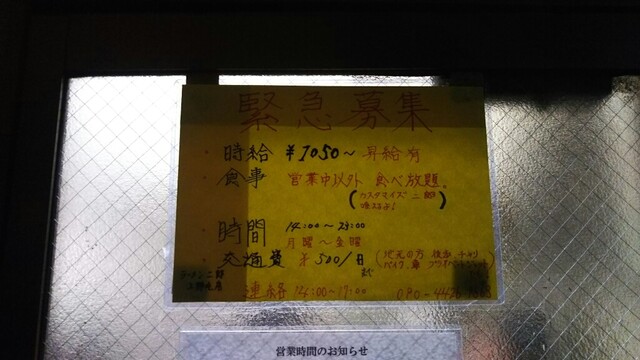 緊急募集
・時給 ¥1050～ 昇給有
・食事 営業中以外 食べ放題。
(カスタマイズ二郎
・時間 14:00～24:00
月曜～金曜
・交通費 ¥500/日まで
(地元の方
ラーメン二郎
連絡 14:00～17:00 080-442
営業時間のお知らせ